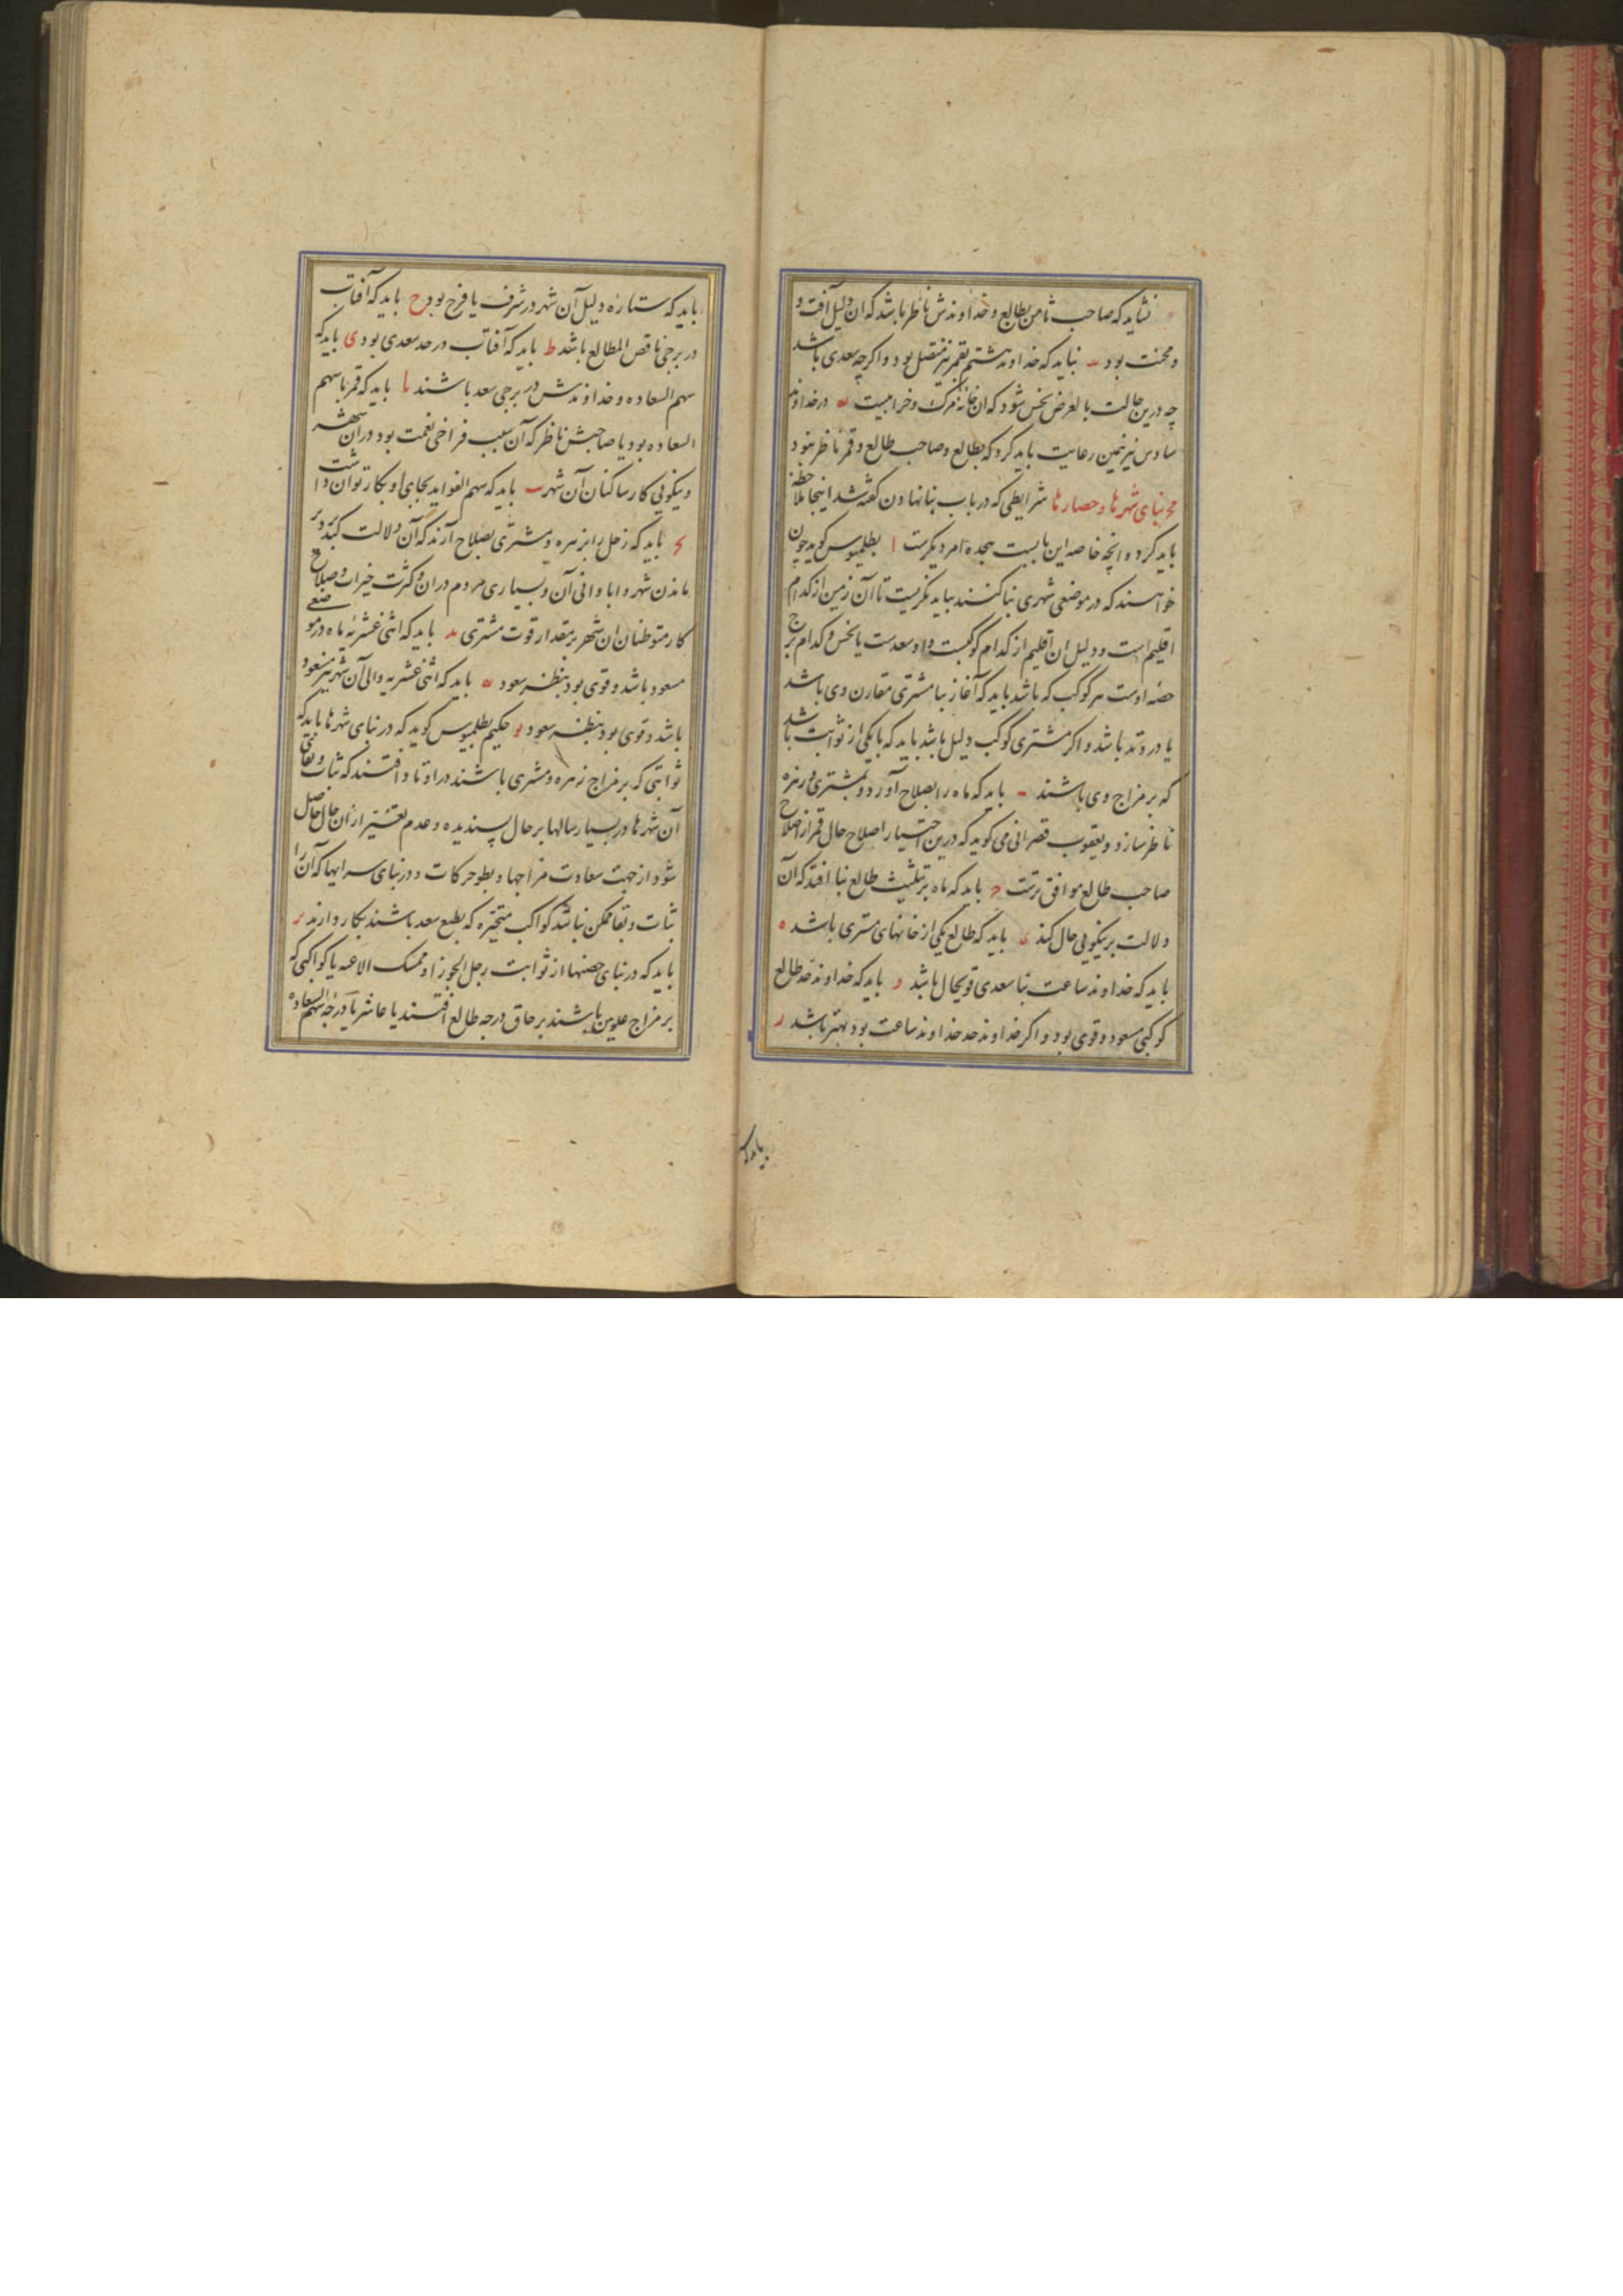 نشاید که صاحب ثامن بطالع و خداوندش ناظر باشد که آن دلیل آفت و
و محنت بود ید نباید که خداوند هشتم بقمر نیز متصل بود و اگرچه سعدی باشد
چه درین حالت بالعرض نحس شود که ان خانهٔ مرک و خرابیست یه در خداوند
سادس نیز همین رعایت باید کرد که بطالع و صاحب طالع و قمر ناظر نبود
مح بنای شهرها و حصارها شرایطی که در باب بنا نهادن گفته شد اینجا ملاحظه
باید کرد و انچه خاصه این بابست هجده امر دیکرست ا بطلمیوس کوید چون
خواهند که در موضعی شهری بنا کنند بباید نکریست تا آن زمین از کدام
اقلیم است و دلیل ان اقلیم از کدام کوکبست و او سعدست یا نحس و کدام برج
حصه اوست هر کوکب که باشد باید که آغاز بنا مشتری مقارن وی باشد
یا در وتد باشد و اکر مشتری کوکب دلیل باشد باید که با یکی از ثوابت باشد
که بر مزاج وی باشند ب باید که ماه را بصلاح آورد و بمشتری و زهره
ناظر سازد و یعقوب قصرانی می کوید که درین اختیار اصلاح حال قمر از اصلاح
صاحب طالع موافق ترست ج باید که ماه بر تثلیث طالع بنا افتد که آن
دلالت بر نیکویی حال کند د باید که طالع یکی از خانهای مشتری باشد ه
باید که خداوند ساعت بنا سعدی قویحال باشد و باید که خداوند حد طالع
کوکبی مسعود و قوی بود و اکر خداوند حد خداوند ساعت بود بهتر باشد ز
باید که
باید که ستاره دلیل آن شهر در شرف یا فرح بود ح باید که آفتاب
در برجی ناقص المطالع باشد ط باید که آفتاب در حد سعدی بود ی باید که
سهم السعاده و خداوندش در برجی سعد باشند یا باید که قمر با سهم
السعاده بود یا صاحبش ناظر که آن سبب فراخی نعمت بود در ان شهر
و نیکویی کار ساکنان آن شهر یب باید که سهم الفواید بجای او بکار توان داشت
یج باید که زحل را بزهره و مشتری بصلاح آرند که آن دلالت کند بر دیر
ماندن شهر و ابادانی آن و بسیاری مردم در ان و کثرت خیرات و صلاح
کار متوطنان ان شهر بمقدار قوت مشتری ید باید که اثنی عشریه ماه در موضعی
مسعود باشد و قوی بود بنظر سعود یه باید که اثنی عشریه والی آن شهر نیز مسعود
باشد و قوی بود بنظر سعود یو حکیم بطلمیوس کوید که در بنای شهرها باید که
ثوابتی که بر مزاج زهره و مشتری باشند در اوتاد افتند که ثبات و بقای
آن شهرها در بسیار سالها بر حال پسندیده و عدم تغییر از ان حال حاصل
شود از جهت سعادت مزاجها و بطوء حرکات و در بنای سرایها که آن را
ثبات و بقا ممکن نباشد کواکب متحیره که بطبع سعد باشند بکار دارند یز
باید که در بنای حصنها از ثوابت رجل الجوزا و ممسک الاعنه یا کواکبی که
بر مزاج علویین باشند بر حاق درجه طالع افتند یا عاشر یا درجه سهم السعاده